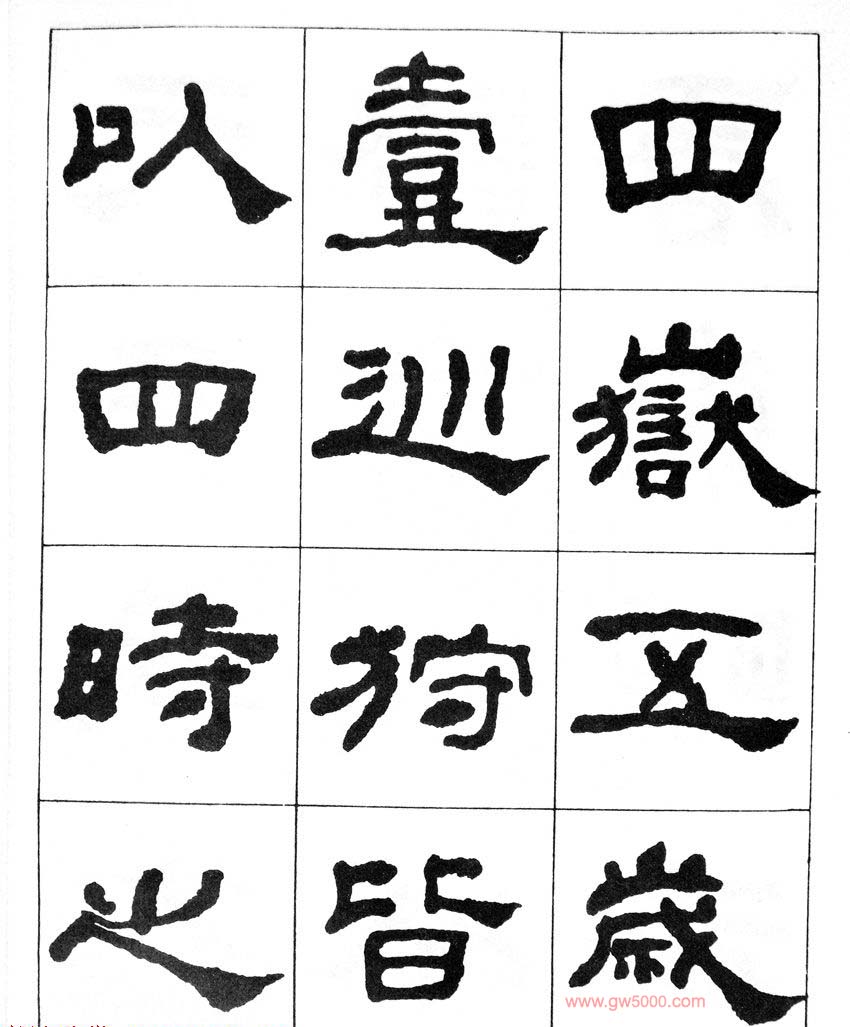 四嶽五歲
壹巡狩皆
以四時之
www.gw5000.com